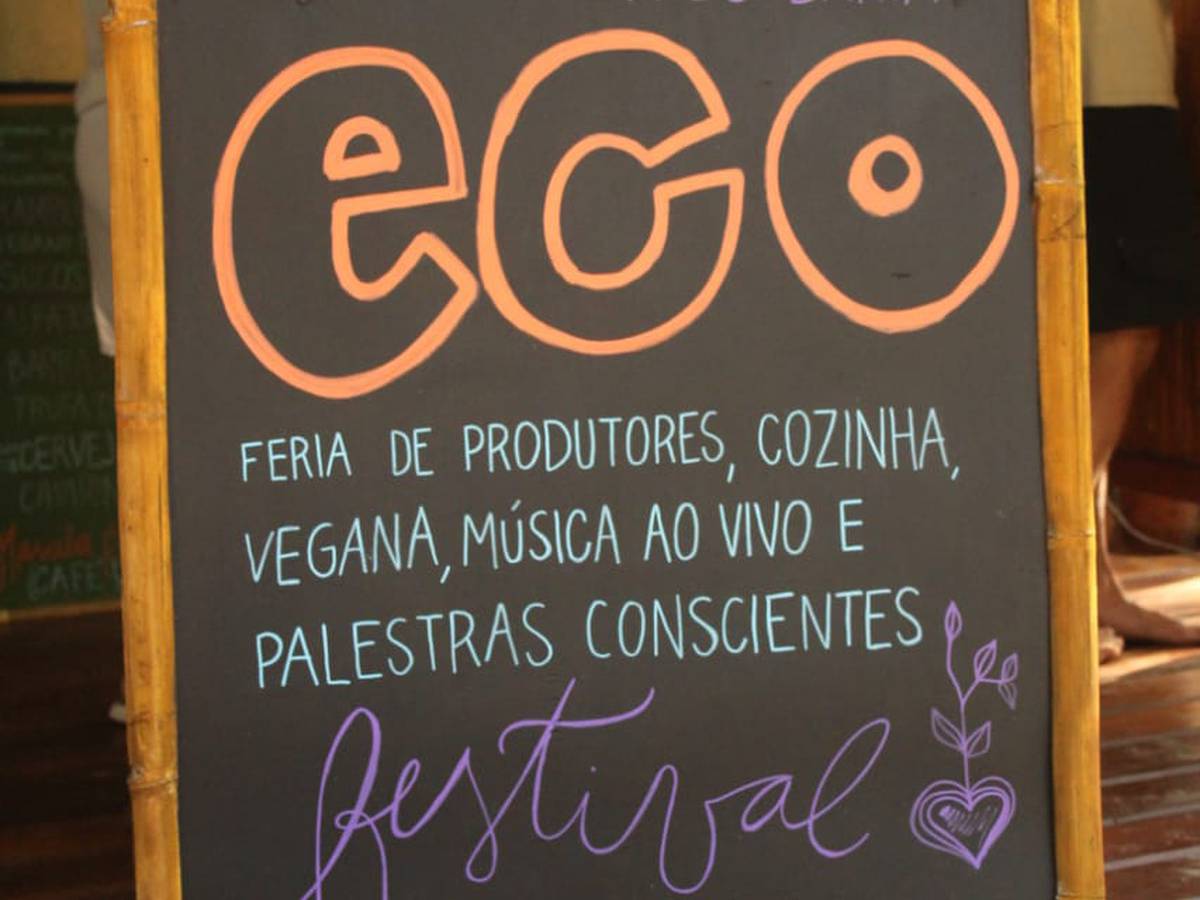 eco
FERIA DE PRODUTORES, COZINHA,
VEGANA, MÚSICA AO VIVO E
PALESTRAS CONSCIENTES
festival
SUCOS
CAFÉ